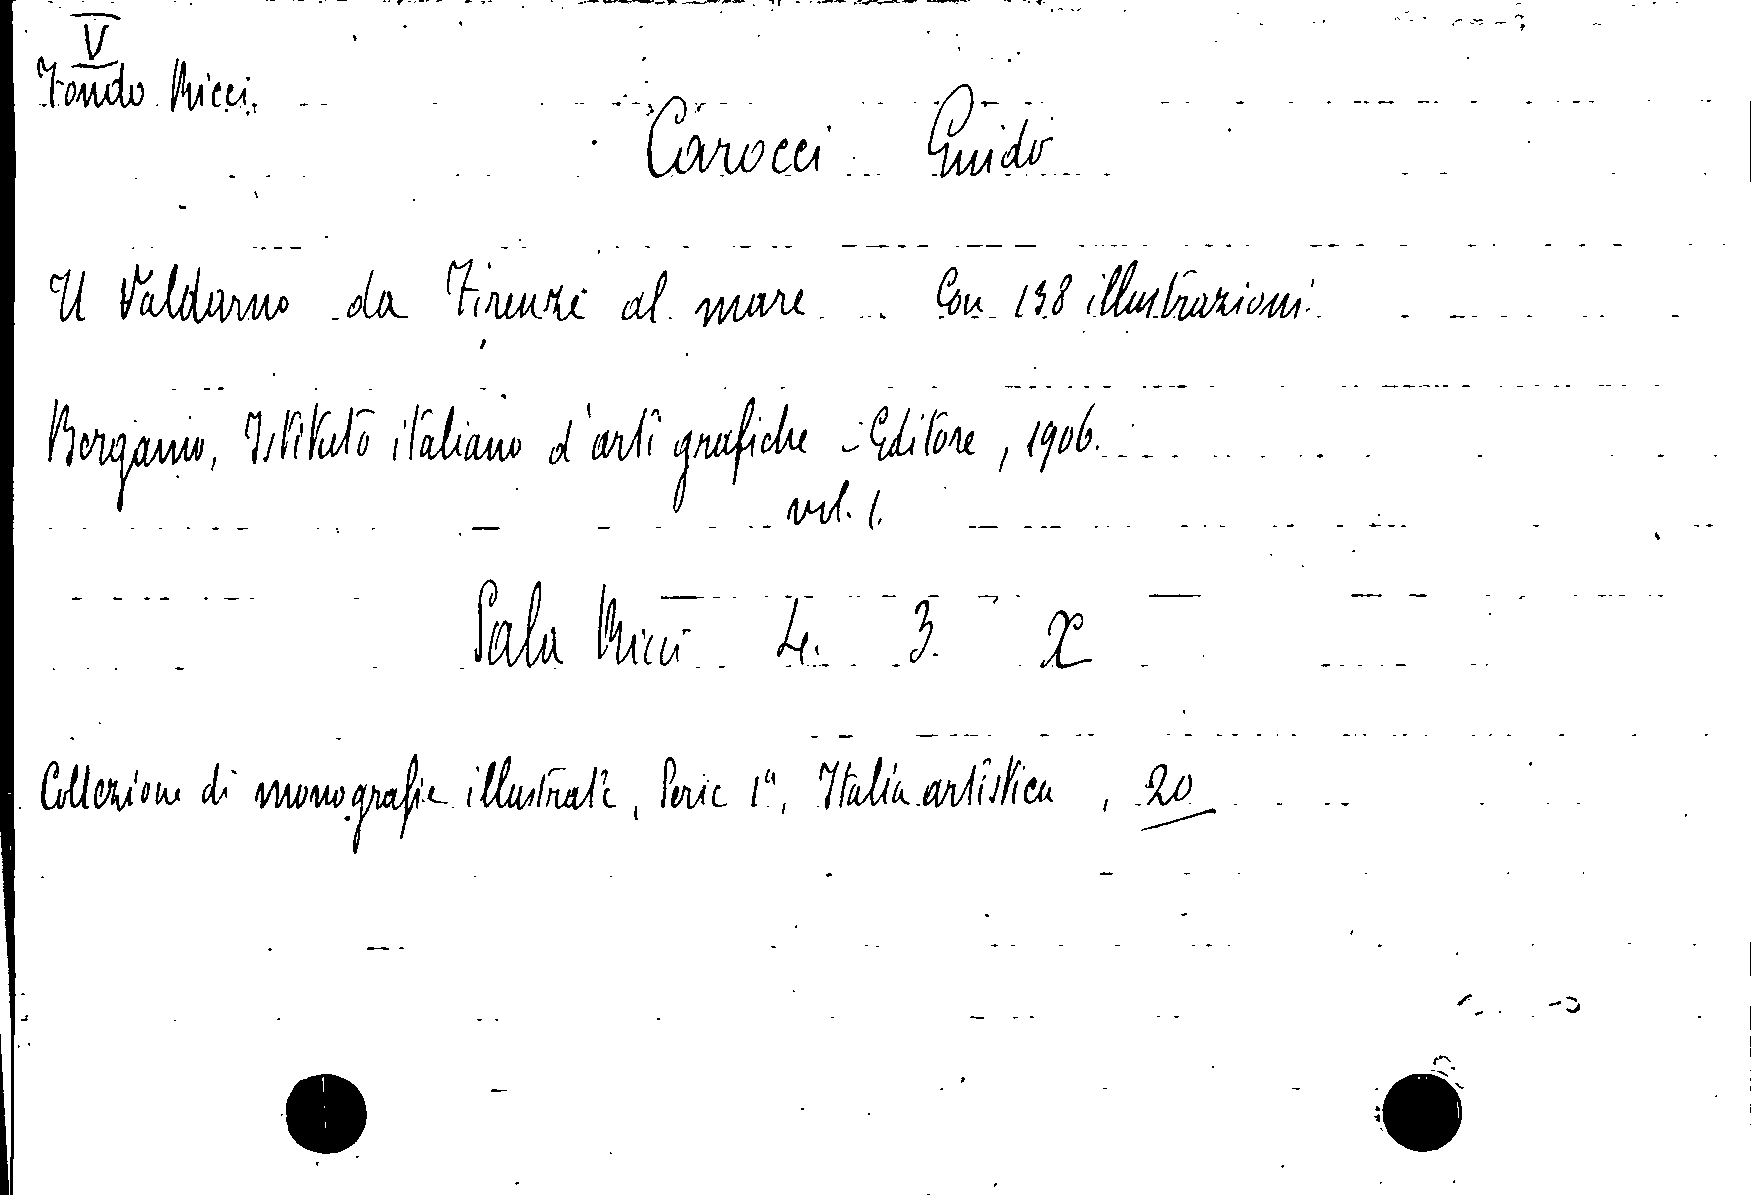 V
Fondo Ricci.
Carocci Guido
Il Valdarno da Firenze al mare Con 138 illustrazioni.
Bergamo, Istituto italiano d'arti grafiche - Editore, 1906.
vol. 1.
Sala Ricci 4. 3. X
Collezione di monografie illustrate, Serie 1ª, Italia artistica, 20